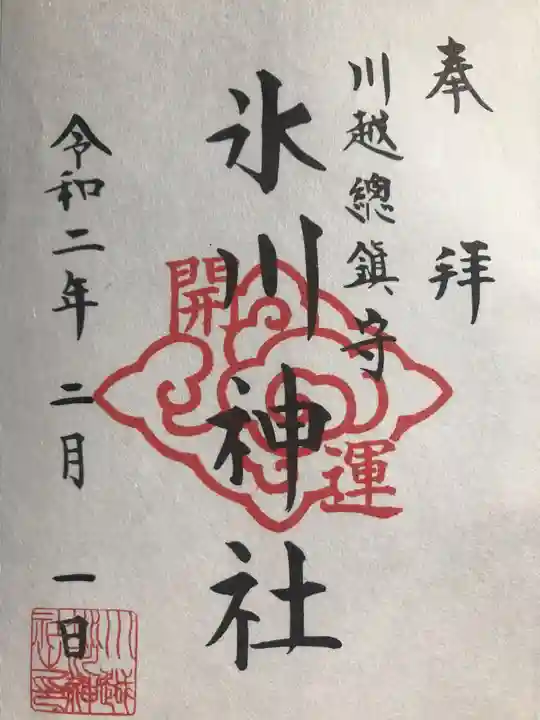 奉拝
川越總鎮守
氷川神社
開運
令和二年二月一日